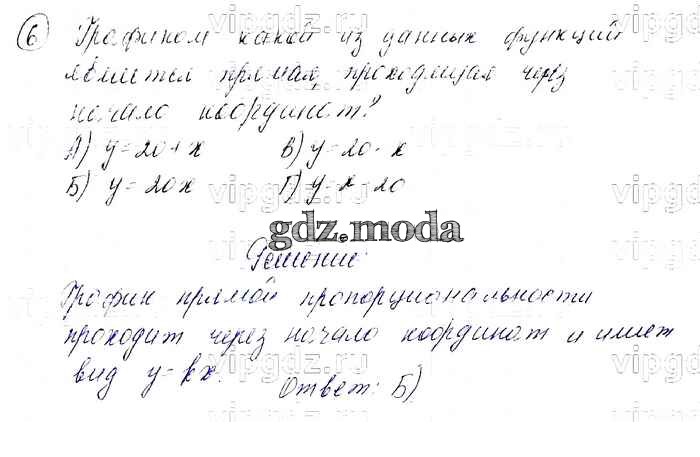 6 Графиком какой из данных функций
является прямая, проходящая через
начало координат?
А) y=20+x В) y=20-x
Б) y=20x Г) y=x-20
gdz.moda
Решение:
График прямой пропорциональности
проходит через начало координат и имеет
вид y=kx.
Ответ: Б)
vipgdz.ru